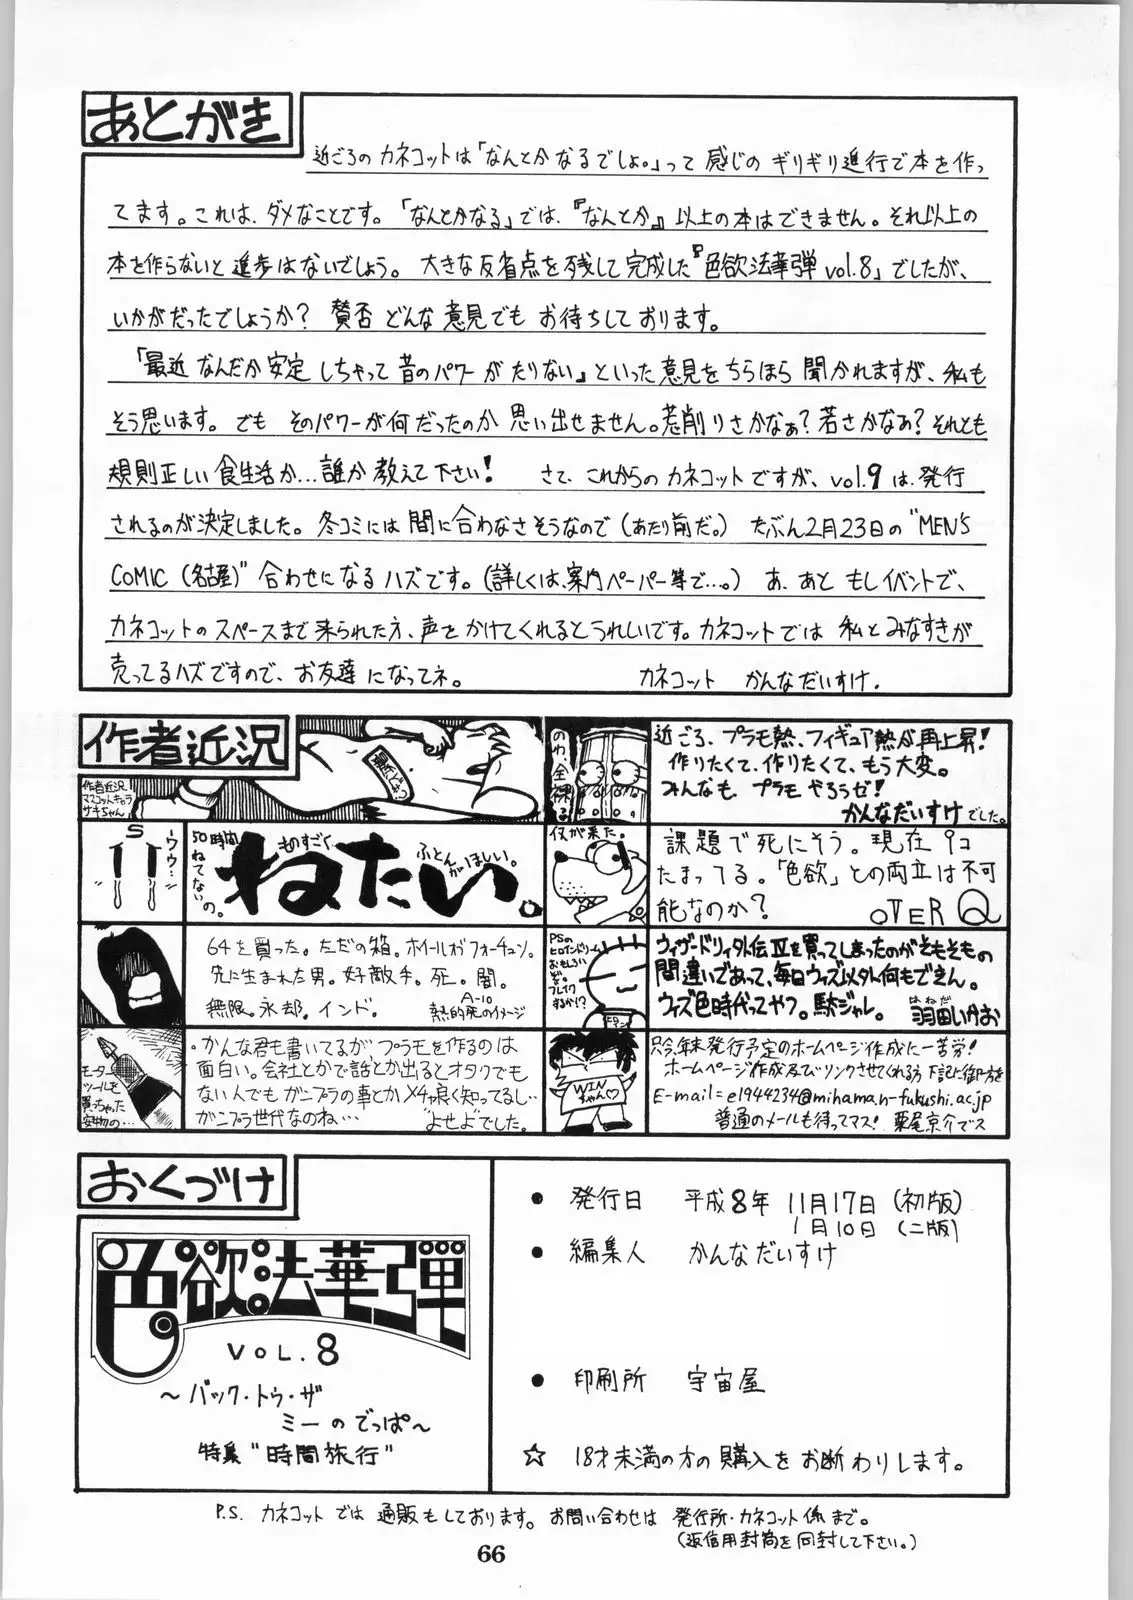 あとがき
近ごろの カネコットは「なんとかなるでしょ。」って 感じの ギリギリ進行で本を作っ
てます。これは、ダメなことです。「なんとかなる」では、『なんとか』以上の本はできません。それ以上の
本を作らないと 進歩はないでしょう。 大きな反省点を残して 完成した『色欲法華弾 vol.8」でしたが、
いかがだったでしょうか? 賛否 どんな意見でも お待ちしております。
「最近 なんだか安定 しちゃって 昔のパワーが たりない」といった意見をちらほら 聞かれますが、私も
そう思います。でも そのパワーが何だったのか 思い出せません。荒削りさかなぁ?若さかなぁ?それとも
規則正しい食生活か…誰か教えて下さい! さて、これからの カネコットですが、vol.9 は、発行
されるのが決定しました。冬コミには 間に合わなさそうなので(あたり前だ。) たぶん2月23日の "MEN'S
COMIC (名古屋)"合わせになるハズです。(詳しくは、案内ペーパー等で…。) あ、あと もしイベントで、
カネコットのスペースまで来られた方、声をかけてくれるとうれしいです。カネコットでは 私とみなすきが
売ってるハズですので、お友達になってネ。 カネコット かんなだいすけ.
作者近況
作者近況!
マスコットキャラ
サキちゃん
のわ、全裸
近ごろ、プラモ熱、フィギュア熱が再上昇!
作りたくて、作りたくて、もう大変。
みんなも、プラモ やろうゼ!
かんなだいすけでした。
S
ウゥ…
50時間
ねてない
の。
ものすごく
ねたい。
ふとん
がほしい。
仪が来た。
課題で死にそう。現在 9コ
たまってる。「色欲」との両立は不可
能なのか? OVER Q
64を買った。ただの箱。ホイールオブフォーチュン。
先に生まれた男。好敵手。死。闇。
無限。永却。インド。
A-10
熱的死のイメージ
PSの
ヒロインドリーム
おもしろい
ぞ。
ブレイク
するか!?
ウィザードリィ外伝Ⅳを買ってしまったのがそもそもの
間違いであって、毎日ウィズ以外何もできん。
ウィズ色時代ってやつ。駄ジャレ。
はねだ
羽田いかお
モーター
ツールを
買っちゃった
安物の…
かんな君も書いてるが、プラモを作るのは
面白い。会社とかで話とか出るとオタクでも
ない人でもガンプラの事とかメチャ良く知ってるし…
ガンプラ世代なのね… "よせじ"でした。
WIN
ちゃん♡
只今、年末発行予定のホームページ作成に一苦労!
ホームページ作成及びリンクさせてくれる方 下記に御一方を
E-mail=e1944234@mihama.n-fukushi.ac.jp
普通のメールも待ってマス! 栗尾京介でス
おくづけ
色欲法華弾
VOL.8
~バック・トゥ・ザ
ミーのでっぱ~
特集 "時間旅行"
● 発行日 平成8年 11月17日(初版)
1月10日(二版)
● 編集人 かんなだいすけ
● 印刷所 宇宙屋
☆ 18才未満の方の購入をお断わりします。
P.S. カネコットでは 通販もしております。お問い合わせは 発行所・カネコット係まで。
(返信用封筒を同封して下さい。)
66